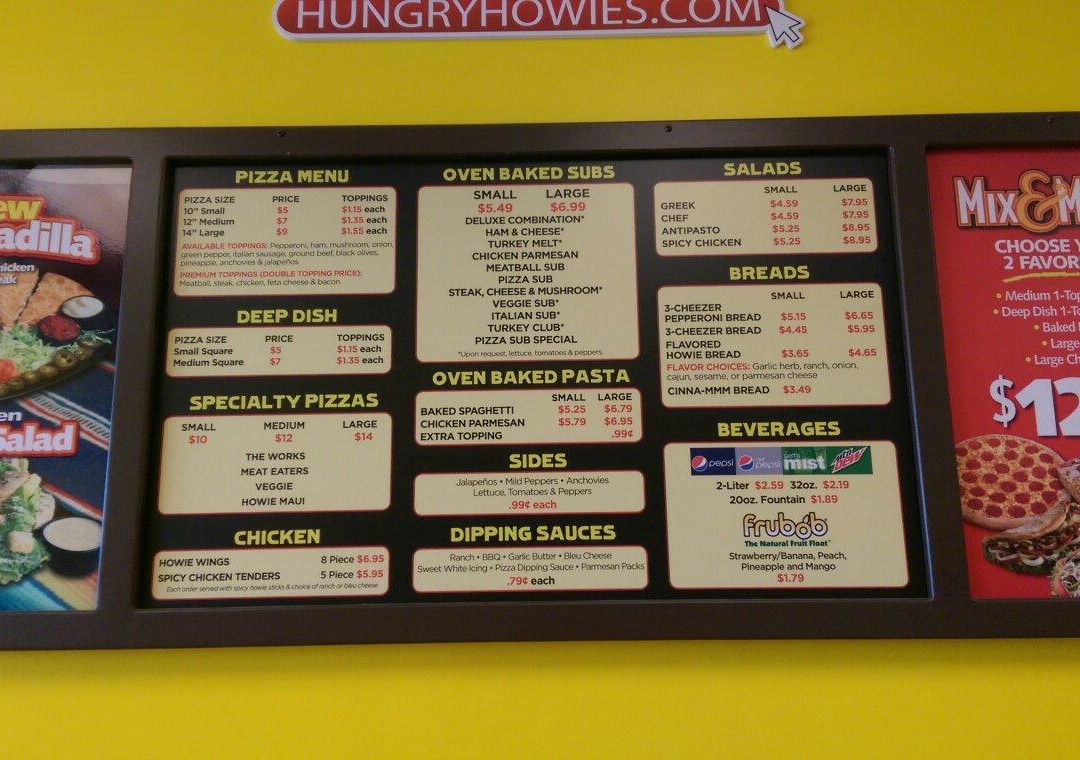 HUNGRYHOWIES.COM
ew
adilla
hicken
eak
en
Salad
PIZZA MENU
PIZZA SIZE PRICE TOPPINGS
10" Small $5 $1.15 each
12" Medium $7 $1.35 each
14" Large $9 $1.55 each
AVAILABLE TOPPINGS: Pepperoni, ham, mushroom, onion,
green pepper, italian sausage, ground beef, black olives,
pineapple, anchovies & jalapeños
PREMIUM TOPPINGS (DOUBLE TOPPING PRICE):
Meatball, steak, chicken, feta cheese & bacon
DEEP DISH
PIZZA SIZE PRICE TOPPINGS
Small Square $5 $1.15 each
Medium Square $7 $1.35 each
SPECIALTY PIZZAS
SMALL MEDIUM LARGE
$10 $12 $14
THE WORKS
MEAT EATERS
VEGGIE
HOWIE MAUI
CHICKEN
HOWIE WINGS 8 Piece $6.95
SPICY CHICKEN TENDERS 5 Piece $5.95
Each order served with spicy howie sticks & choice of ranch or bleu cheese
OVEN BAKED SUBS
SMALL LARGE
$5.49 $6.99
DELUXE COMBINATION*
HAM & CHEESE*
TURKEY MELT*
CHICKEN PARMESAN
MEATBALL SUB
PIZZA SUB
STEAK, CHEESE & MUSHROOM*
VEGGIE SUB*
ITALIAN SUB*
TURKEY CLUB*
PIZZA SUB SPECIAL
*Upon request, lettuce, tomatoes & peppers.
OVEN BAKED PASTA
SMALL LARGE
BAKED SPAGHETTI $5.25 $6.79
CHICKEN PARMESAN $5.79 $6.95
EXTRA TOPPING .99¢
SIDES
Jalapeños • Mild Peppers • Anchovies
Lettuce, Tomatoes & Peppers
.99¢ each
DIPPING SAUCES
Ranch • BBQ • Garlic Butter • Bleu Cheese
Sweet White Icing • Pizza Dipping Sauce • Parmesan Packs
.79¢ each
SALADS
SMALL LARGE
GREEK $4.59 $7.95
CHEF $4.59 $7.95
ANTIPASTO $5.25 $8.95
SPICY CHICKEN $5.25 $8.95
BREADS
SMALL LARGE
3-CHEEZER
PEPPERONI BREAD $5.15 $6.65
3-CHEEZER BREAD $4.45 $5.95
FLAVORED
HOWIE BREAD $3.65 $4.65
FLAVOR CHOICES: Garlic herb, ranch, onion,
cajun, sesame, or parmesan cheese
CINNA-MMM BREAD $3.49
BEVERAGES
pepsi pepsi mist mtn dew
2-Liter $2.59 32oz. $2.19
20oz. Fountain $1.89
frubob
The Natural Fruit Float™
Strawberry/Banana, Peach,
Pineapple and Mango
$1.79
MIX&M
CHOOSE Y
2 FAVOR
• Medium 1-Top
• Deep Dish 1-To
• Baked
• Large
• Large Ch
$12